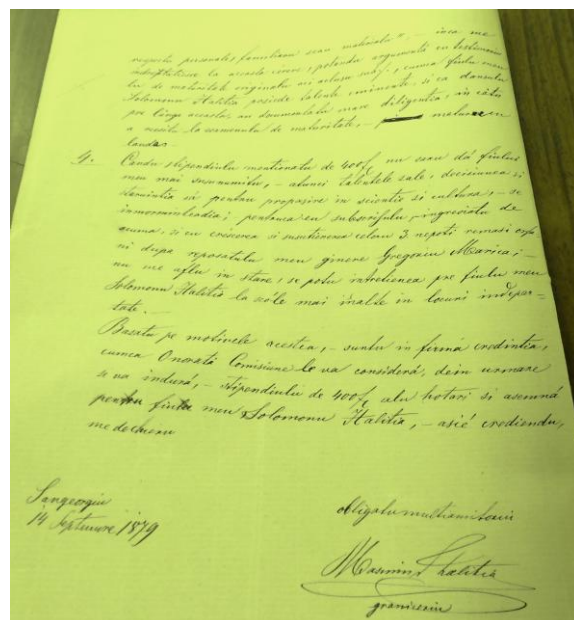 respectu personale, familiara seau materiale" – inca me
indreptatiesce la acesta cerere, potendu argumentá cu testimoniu
lu de maturitate originalu aci aclusu sub ·/., cumca fiulu meu
Solomonu Halitia posiede talente eminente, si ca dansulu
pre lânga acestea, au documentatu mare diligentia, au catu
a reesitu la esamenulu de maturitate, – maturu cu
lauda. –
4. Candu stipendiulu mentionatu de 400 f nu s'ar dá fiului
meu mai susnumitu, – atunci talentele sale, deciziunea si
dorintia sá pentru propasire in scientie si cultura, – se
inmormentéadia; pentruca eu subscrisulu, – ingreuiatu de
acuma, si cu crescerea si sustienerea celoru 3 nepoti remasi orfa
ni dupa repausatulu meu ginere Gregoriu Marica; –
nu me aflu in stare, se potu intretienea pre fiulu meu
Solomonu Halitia la scóle mai inalte in locuri indepar=
tate. –
Basatu pe motivele acestea, – suntu in firma credintia,
cumca Onorata Comisiune le va considerá, dein urmare
se va indurá, – stipendiulu de 400 f alu hotari si asemná
pentru fiulu meu Solomonu Halitia, – asié crediendu,
me dechieru
Sangeorgiu
14 Septemvre 1879
obligatu multiamitoriu
Macsimu Halitia
graniceriu